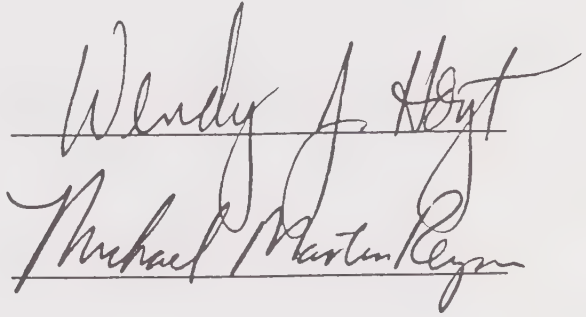 Wendy J. Hoyt
Michael Martin